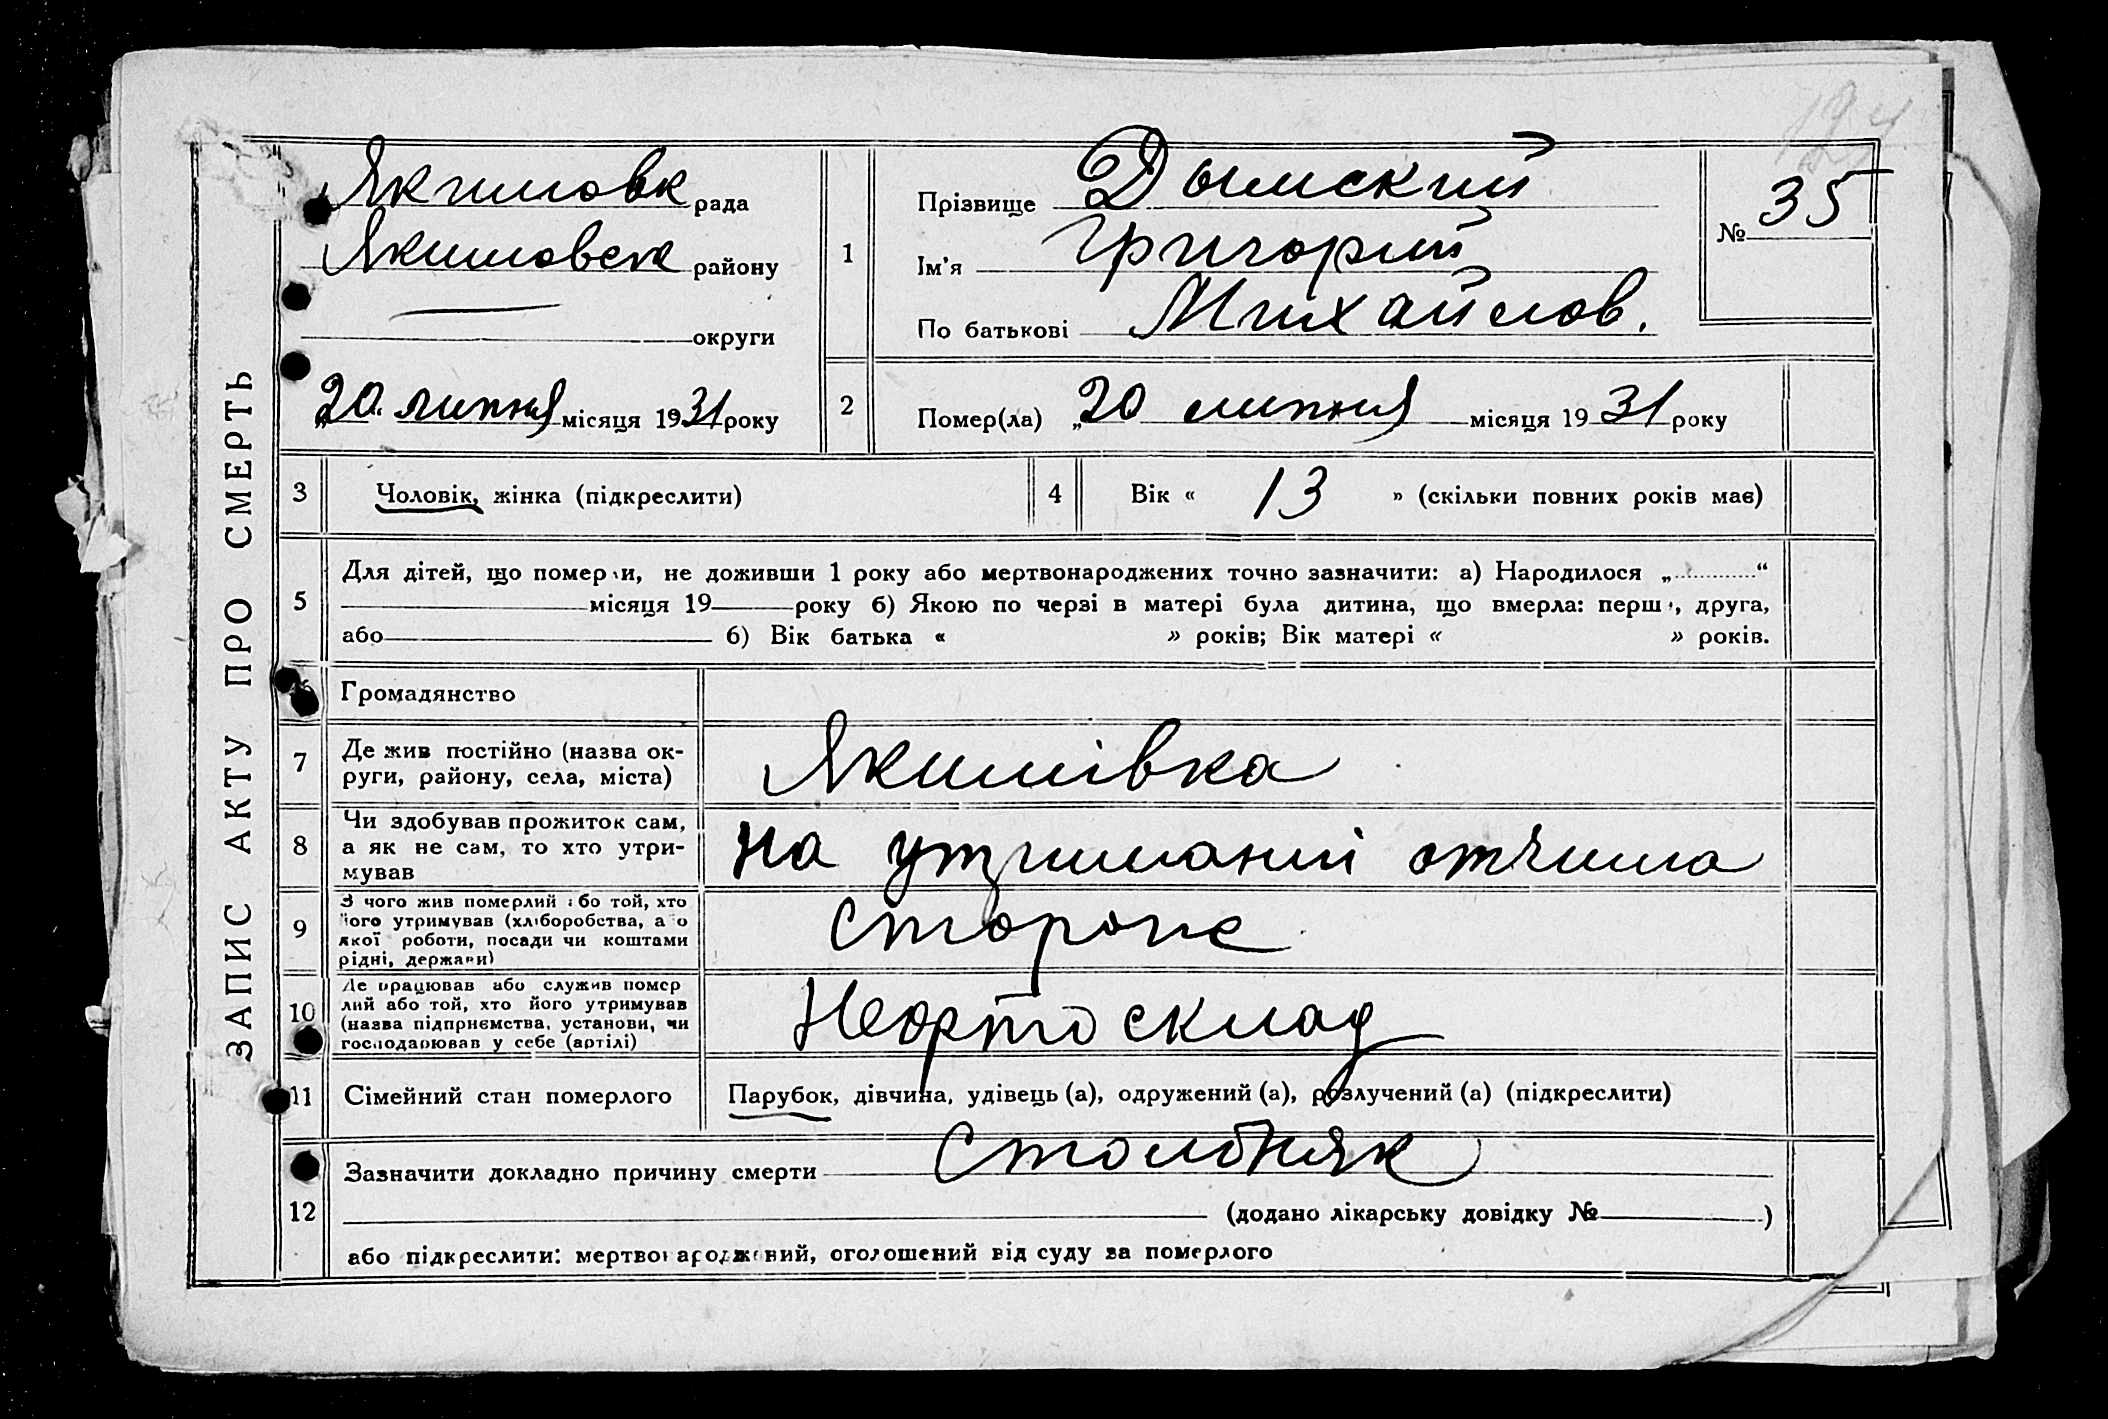 ЗАПИС АКТУ ПРО СМЕРТЬ
Якимовк рада
Якимовск району
округи
„20" липня місяця 1931 року
1
Прізвище Дымский
Ім'я Григорий
По батькові Михайлов.
№ 35
2
Помер(ла) „20 липня місяця 1931 року
3 Чоловік, жінка (підкреслити)
4 Вік « 13 » (скільки повних років має)
5
Для дітей, що померли, не доживши 1 року або мертвонароджених точно зазначити: а) Народилося „ “
місяця 19 року б) Якою по черзі в матері була дитина, що вмерла: перша, друга,
або б) Вік батька « » років; Вік матері « » років.
6 Громадянство
7 Де жив постійно (назва ок-
руги, району, села, міста)
Якимівка
8 Чи здобував прожиток сам,
а як не сам, то хто утри-
мував
на утриманні отчима
9 З чого жив померлий або той, хто
його утримував (хліборобства, або
якої роботи, посади чи коштами
рідні, держави)
Сторож
10 Де працював або служив помер
лий або той, хто його утримував
(назва підприємства, установи, чи
господарював у себе (артілі)
Нефтосклад
11 Сімейний стан померлого
Парубок, дівчина, удівець (а), одружений (а), розлучений (а) (підкреслити)
12
Зазначити докладно причину смерти Столбняк
(додано лікарську довідку № )
або підкреслити: мертвонароджений, оголошений від суду за померлого